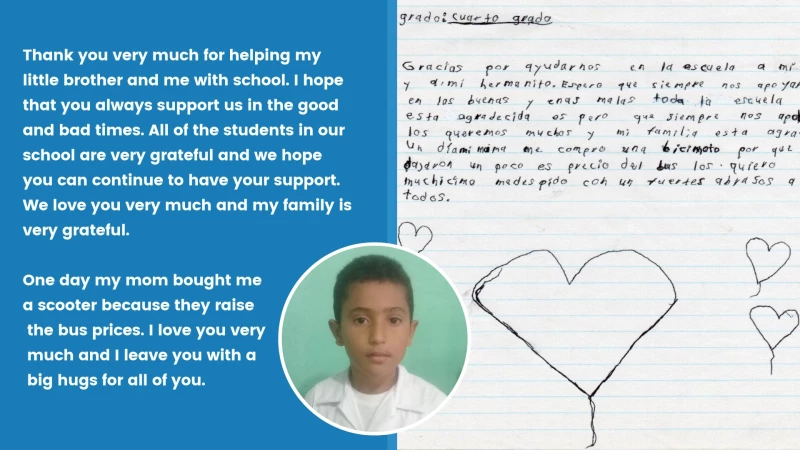 Thank you very much for helping my
little brother and me with school. I hope
that you always support us in the good
and bad times. All of the students in our
school are very grateful and we hope
you can continue to have your support.
We love you very much and my family is
very grateful.
One day my mom bought me
a scooter because they raise
the bus prices. I love you very
much and I leave you with a
big hugs for all of you.
grado: cuarto grado
Gracias por ayudarnos en la escuela a mi
y a mi hermanito. Espero que siempre nos apoyar
en los buenas y enas malas toda la escuela
esta agradecida es pero que siempre nos apo
los queremos muchos y mi familia esta agra
Un dia mi mama me compro una bicimoto por que
un poco es precio del bus los quiero
muchicimo me despido con un fuertes abrasos a
todos.